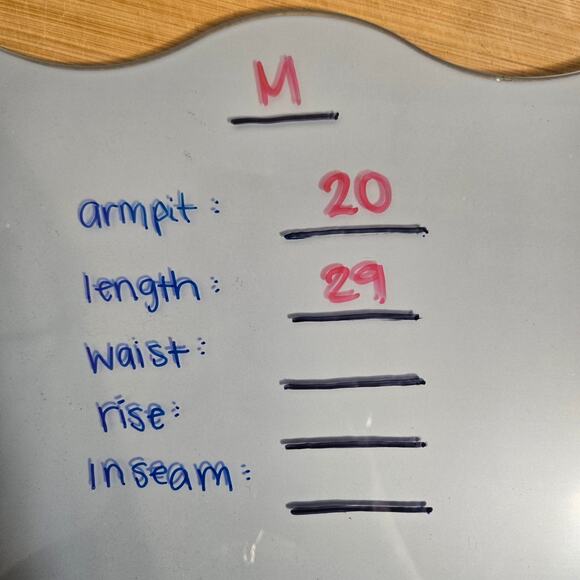 M
armpit: 20
length: 29
waist:
rise:
inseam: